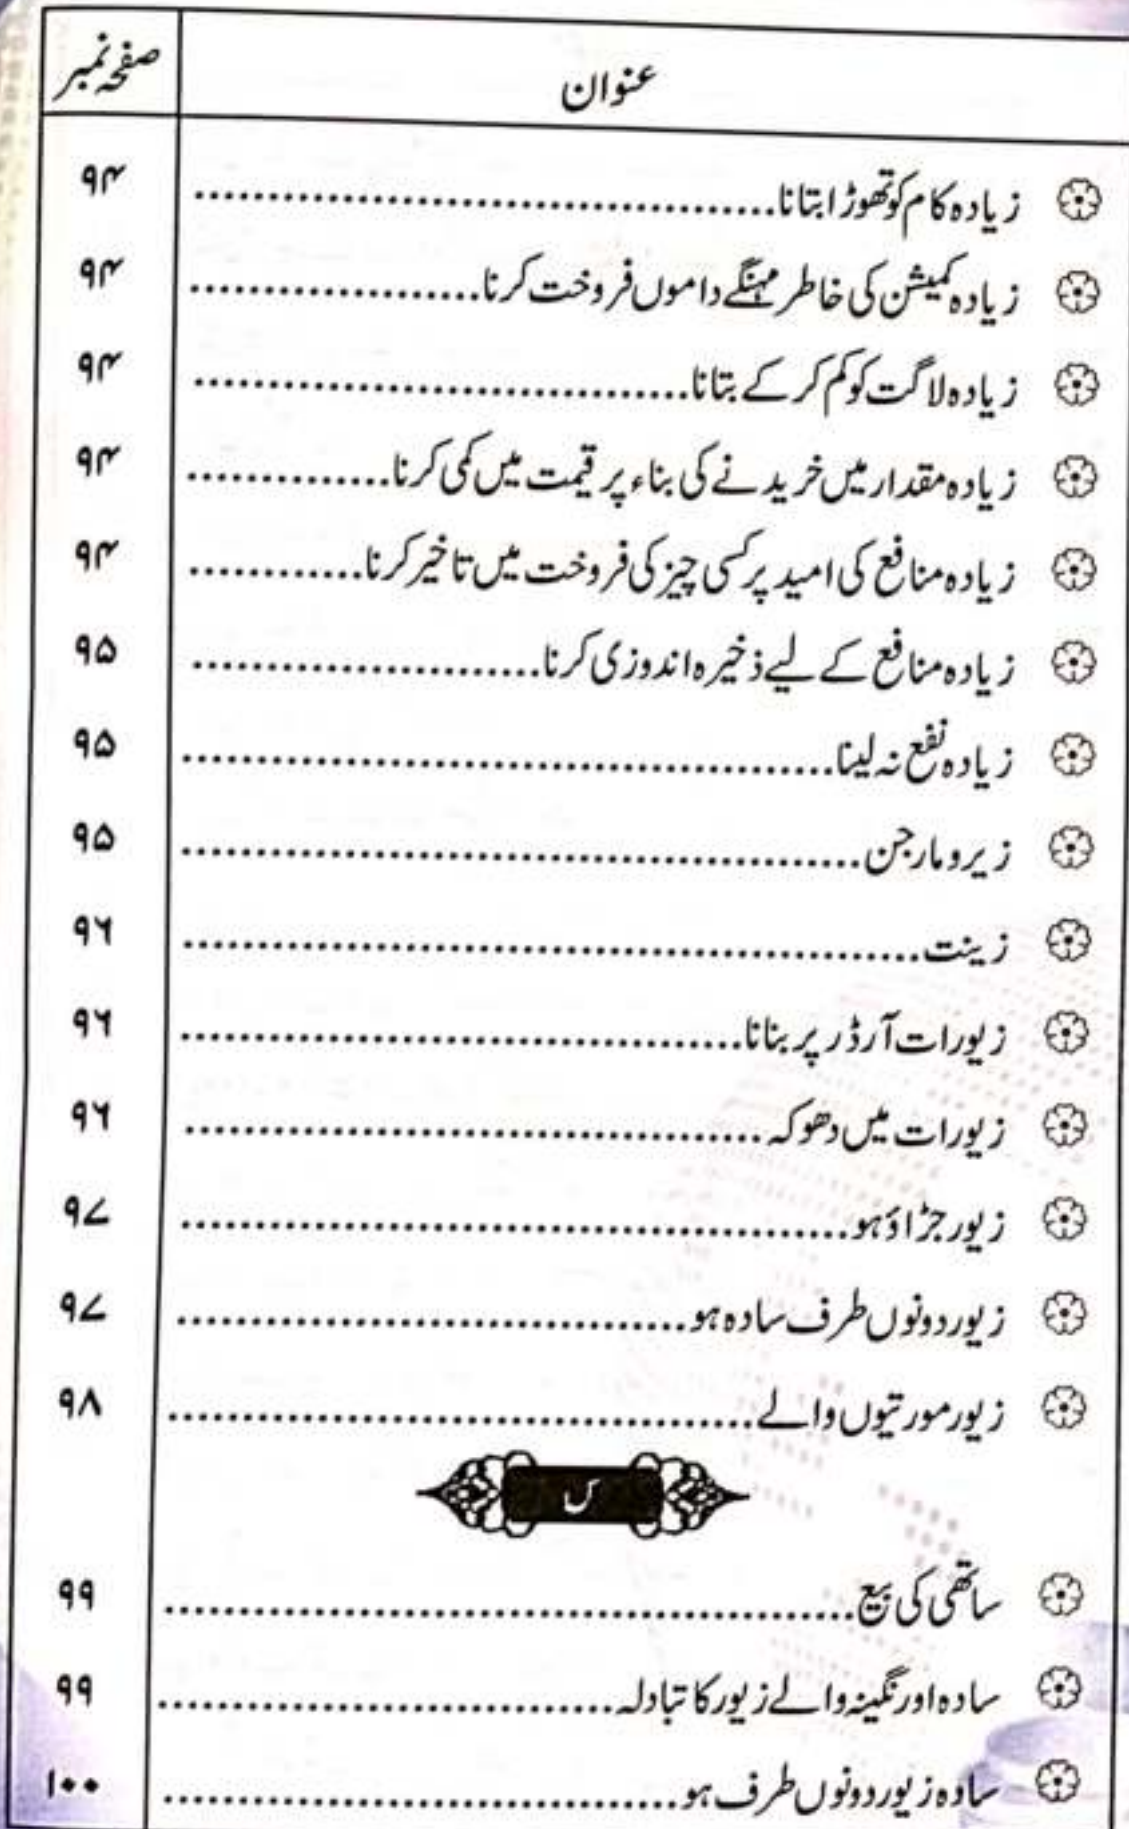 عنوان صفحہ نمبر
زیادہ کام کو تھوڑا بتانا........................................ ۹۴
زیادہ کمیشن کی خاطر مہنگے داموں فروخت کرنا.................... ۹۴
زیادہ لاگت کو کم کر کے بتانا.................................. ۹۴
زیادہ مقدار میں خریدنے کی بناء پر قیمت میں کمی کرنا.............. ۹۴
زیادہ منافع کی امید پر کسی چیز کی فروخت میں تاخیر کرنا............ ۹۴
زیادہ منافع کے لیے ذخیرہ اندوزی کرنا........................ ۹۵
زیادہ نفع نہ لینا............................................ ۹۵
زیرو مارجن.............................................. ۹۵
زینت.................................................. ۹۶
زیورات آرڈر پر بنانا...................................... ۹۶
زیورات میں دھوکہ....................................... ۹۶
زیور جڑاؤ ہو............................................. ۹۷
زیور دونوں طرف سادہ ہو................................... ۹۷
زیور مورتیوں والے........................................ ۹۸
س
ساتھی کی بیع............................................... ۹۹
سادہ اور نگینہ والے زیور کا تبادلہ............................... ۹۹
سادہ زیور دونوں طرف ہو................................... ۱۰۰